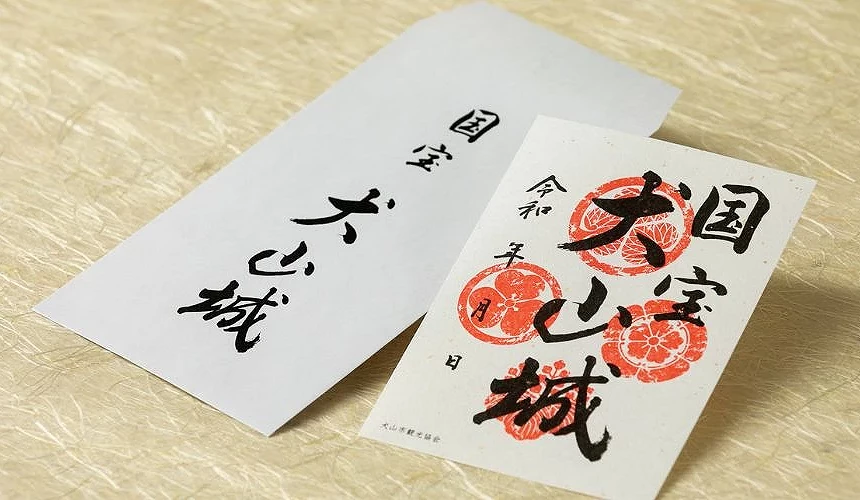 国宝
犬山城
国宝
犬山城
令和
年
月
日
犬山市観光協会